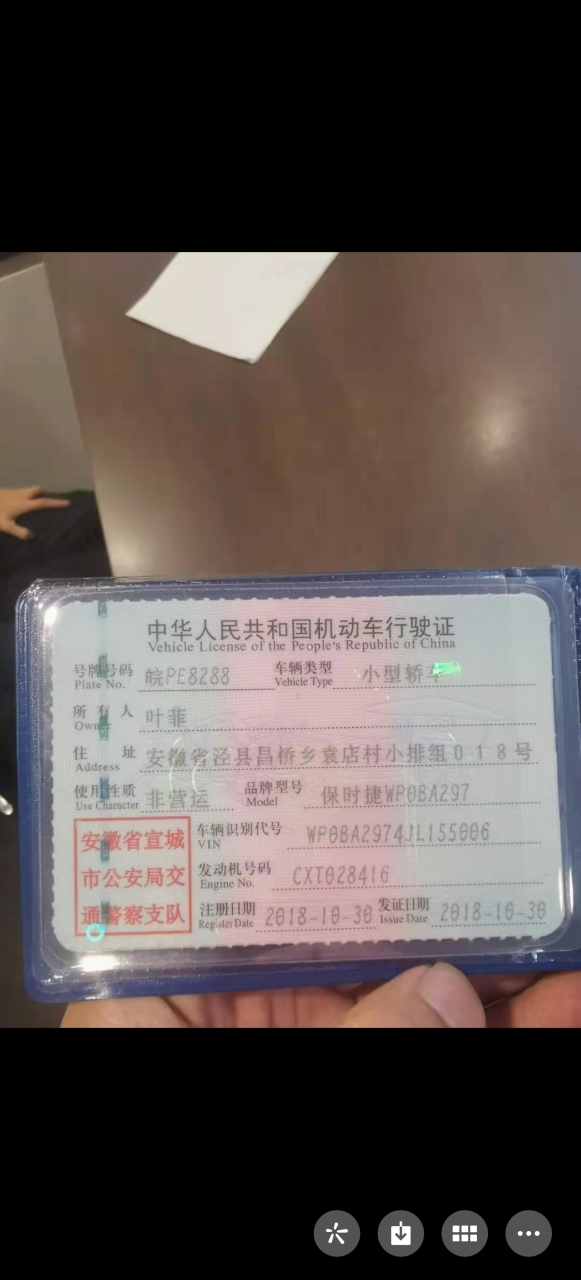 中华人民共和国机动车行驶证
Vehicle License of the People's Republic of China
号牌号码 皖PE8288 车辆类型 小型轿车
Plate No. Vehicle Type
所有人 叶菲
Owner
住址 安徽省泾县昌桥乡袁店村小排组018号
Address
使用性质 非营运 品牌型号 保时捷WP0BA297
Use Character Model
安徽省宣城
市公安局交
通警察支队
车辆识别代号 WP0BA2974JL155006
VIN
发动机号码 CXT028416
Engine No.
注册日期 2018-10-30 发证日期 2018-10-30
Register Date Issue Date